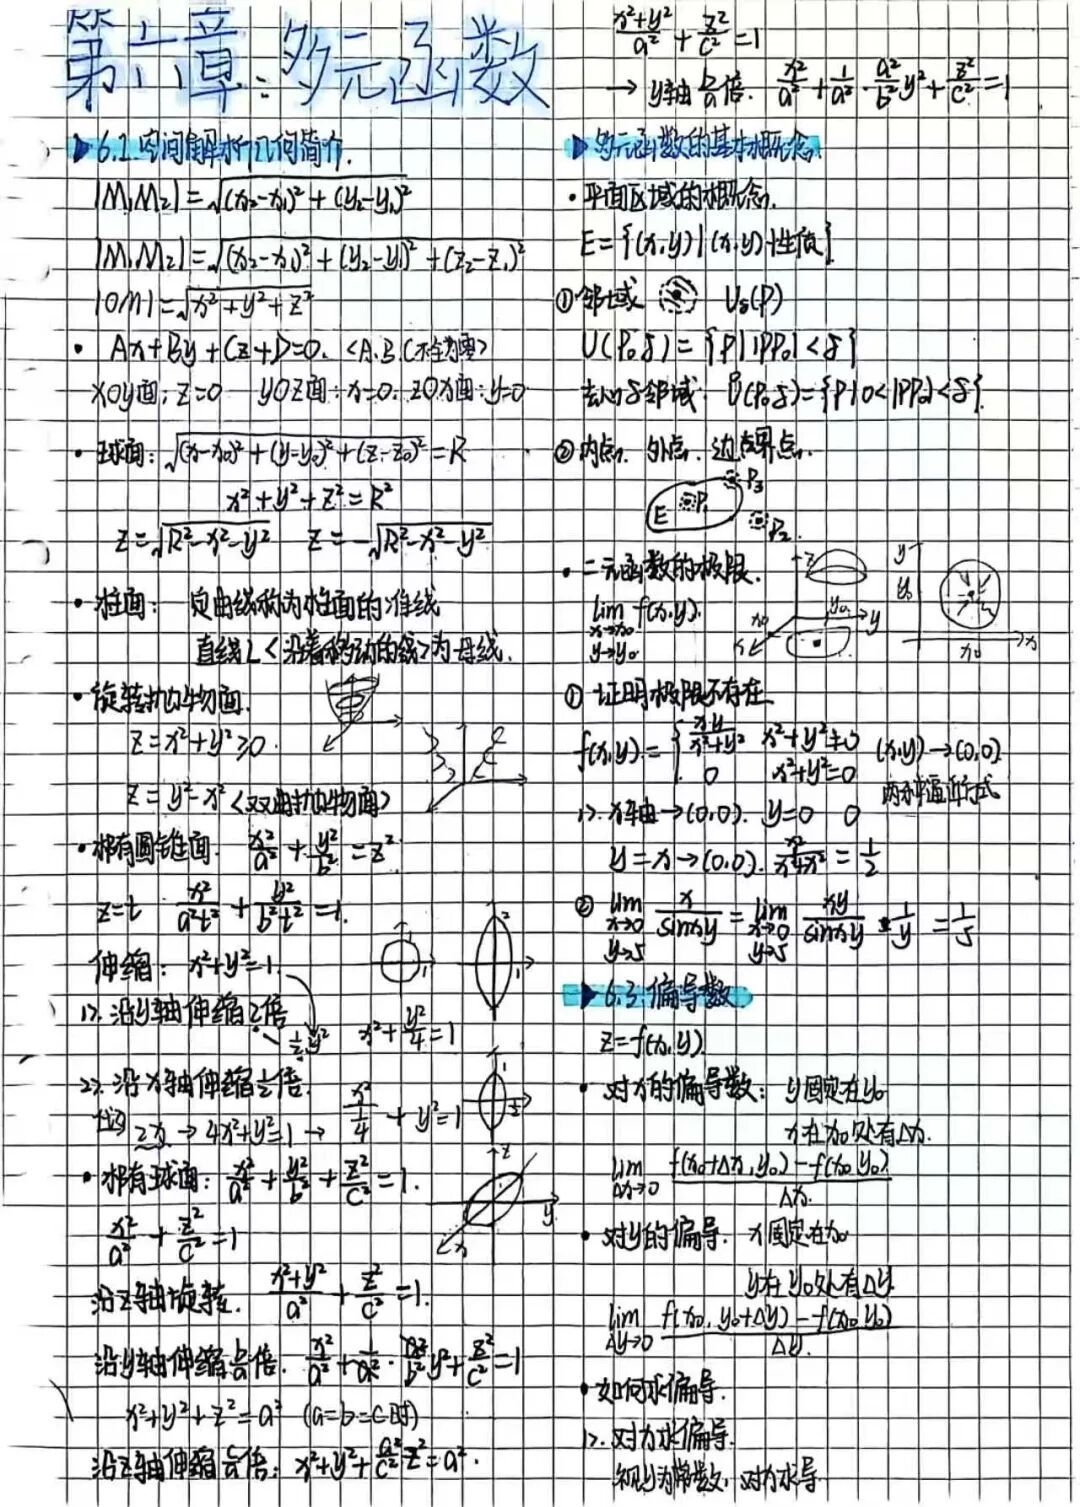 第六章:多元函数
▶ 6.1 空间解析几何简介.
|M₁M₂|=√(x₂-x₁)²+(y₂-y₁)²
|M₁M₂|=√(x₂-x₁)²+(y₂-y₁)²+(z₂-z₁)²
|OM|=√x²+y²+z²
· Ax+By+Cz+D=0. <A.B.C不全为零>
XOY面:z=0 YOZ面:x=0. ZOX面:y=0
· 球面:√(x-x₀)²+(y-y₀)²+(z-z₀)²=R
x²+y²+z²=R²
z=√R²-x²-y² z=-√R²-x²-y²
· 柱面: 定曲线称为柱面的准线
直线L<沿着移动的线>为母线.
· 旋转抛物面.
z=x²+y²≥0.
z=y²-x²<双曲抛物面>
· 椭圆锥面. x²/a²+y²/b²=z²
z=t x²/a²t²+y²/b²t²=1.
伸缩: x²+y²=1.
1>. 沿y轴伸缩2倍
½y² x²+y²/4=1
2>. 沿x轴伸缩½倍.
2x → 4x²+y²=1 → x²/¼+y²=1
· 椭球面: x²/a²+y²/b²+z²/c²=1.
x²/a²+z²/c²=1
沿z轴旋转. x²+y²/a²+z²/c²=1.
沿y轴伸缩b/a倍. x²/a²+1/a²·a²/b²y²+z²/c²=1
x²+y²+z²=a² (a=b=c时)
沿z轴伸缩c/a倍: x²+y²+a²/c²z²=a².
x²+y²/a²+z²/c²=1
→ y轴b/a倍. x²/a²+1/a²·a²/b²y²+z²/c²=1
▶ 多元函数的基本概念.
· 平面区域的概念.
E={(x.y)|(x.y)性质}
① 邻域 Uδ(P)
U(P₀.δ)={P||PP₀|<δ}
去心δ邻域: Ů(P₀.δ)={P|0<|PP₀|<δ}.
② 内点. 外点. 边界点.
E P₁ P₃
P₂
· 二元函数的极限.
lim f(x.y).
x→x₀
y→y₀
z x₀ y₀ y x
y y₀ x₀ x
① 证明极限不存在
f(x.y)={ xy/x²+y² x²+y²≠0 (x.y)→(0,0)
0 x²+y²=0 两种逼近方式
1>. x轴→(0,0). y=0 0
y=x→(0,0). x²/x²+x²=1/2
② lim x/sinxy = lim xy/sinxy · 1/y = 1/5
x→0 x→0
y→5 y→5
▶ 6.3 偏导数
z=f(x.y).
· 对x的偏导数: y固定在y₀
x在x₀处有Δx.
lim f(x₀+Δx,y₀)-f(x₀.y₀)/Δx.
Δx→0
· 对y的偏导. x固定在x₀
y在y₀处有Δy
lim f(x₀,y₀+Δy)-f(x₀.y₀)/Δy.
Δy→0
· 如何求偏导.
1>. 对x求偏导.
视y为常数, 对x求导